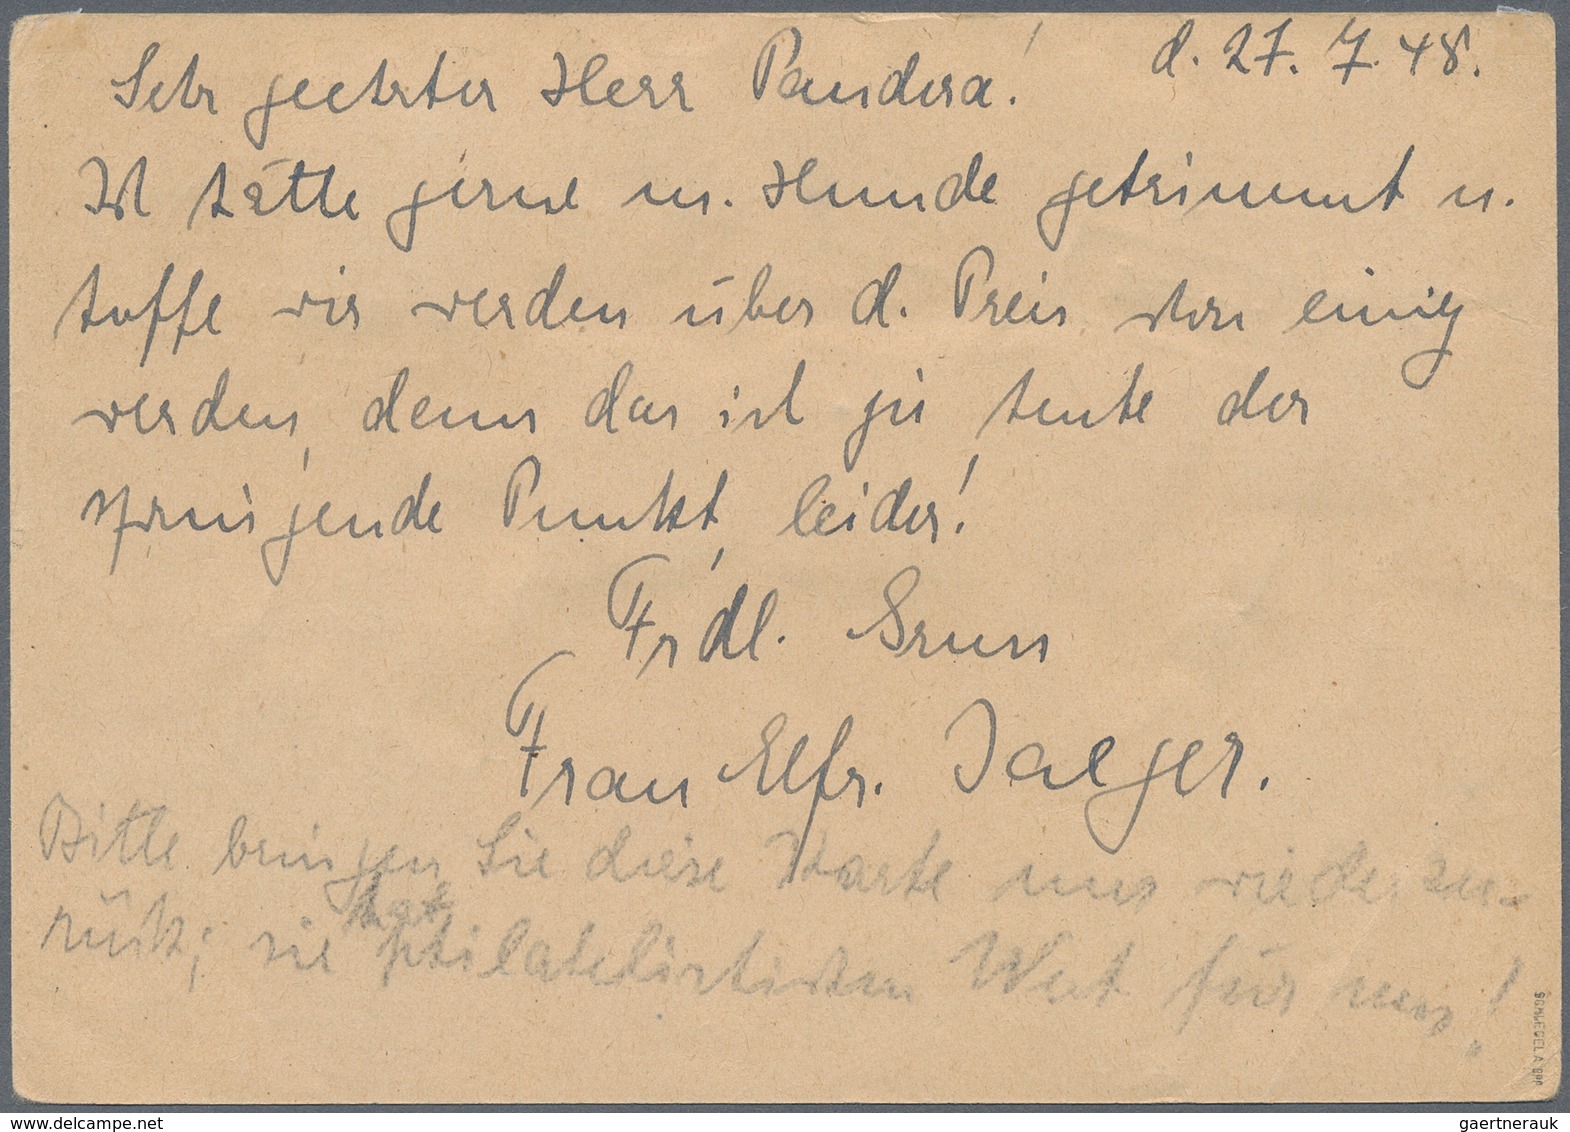 d. 27. 7. 48.
Sehr geehrter Herr Pandera!
Ich hätte gerne m. Hunde getrimmt u.
hoffe wir werden über d. Preis schon einig
werden, denn das ist ja heute der
springende Punkt, leider!
Frdl. Gruss
Frau Elfr. Jaeger.
Bitte bringen Sie diese Karte uns wieder zu-
rück; sie hat philatelistischen Wert für uns!
SCHLEGEL A BPP
gaertnerauk @ delcampe.net